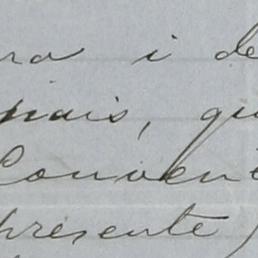 ra i de
mais, qu
Conven
presente)